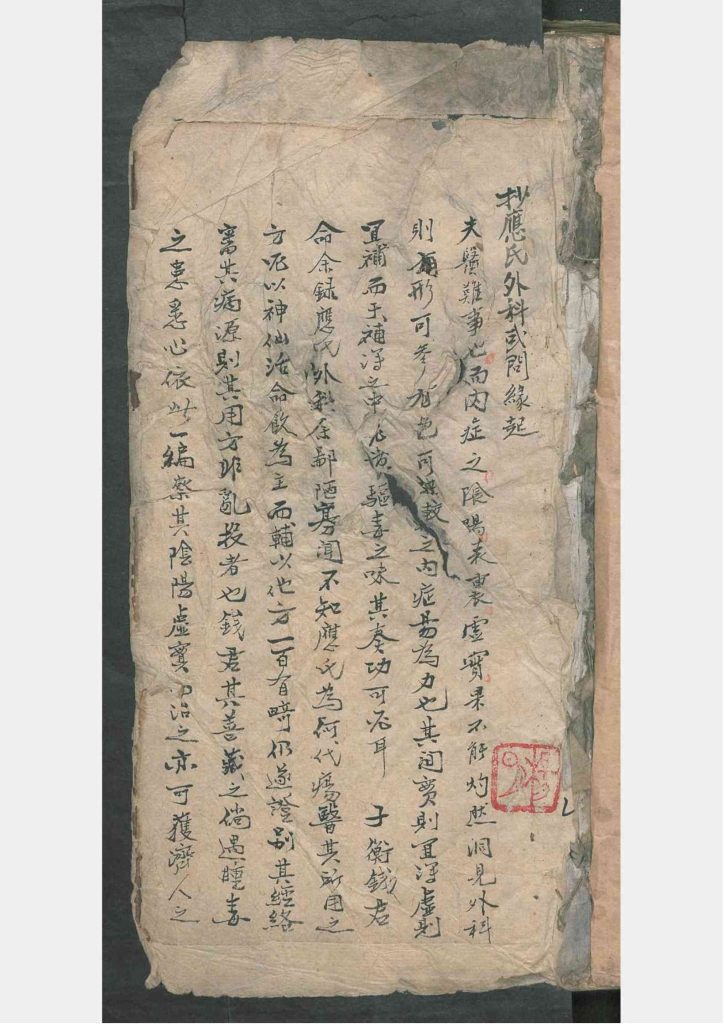 抄應氏外科或問緣起
夫醫難事也而内症之陰陽表裏虛實果不能灼然洞見外科
則有形可參有色可較之内症易為力也其間實則宜瀉虛則
宜補而于補瀉之中驅毒之味其奏功可必耳 子衡錢君
命余録應氏外科余鄙陋寡聞不知應氏為何代瘍醫其所用之
方以神仙活命飲為主而輔以他方一百有畸仍逐證别其經絡
審其病源則其用方非亂投者也錢君其善藏之倘遇腫毒
之患悉心依此一編察其陰陽虛實治之亦可獲濟人之